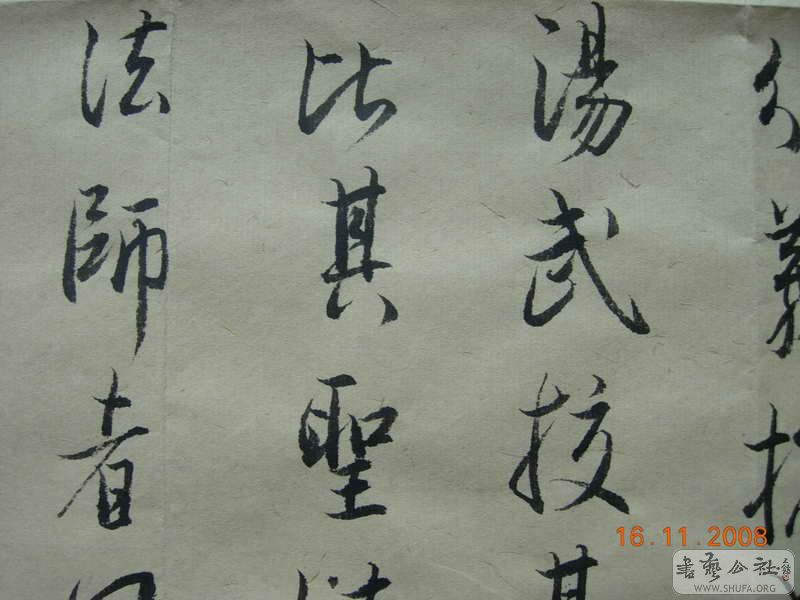 湯武挍其
比其聖
法師者
16.11.2008
書藝公社
WWW.SHUFA.ORG